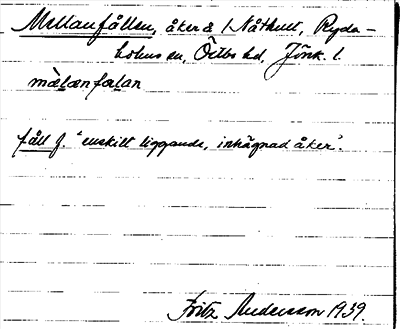 Mellanfållen, åker å 1 Nåthult, Ryda-
holms sn, Östbo hd, Jönk. l.
mälanfalan
fåll f. "enskilt liggande, inhägnad åker".
Fritz Andersson 1939.